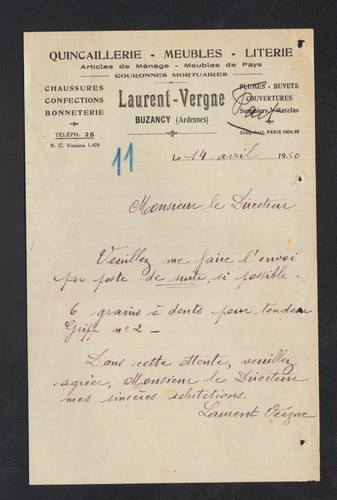 QUINCAILLERIE - MEUBLES - LITERIE
Articles de Ménage - Meubles de Pays
COURONNES MORTUAIRES
CHAUSSURES
CONFECTIONS
BONNETERIE
TÉLÉPH. 25
R. C. Vouziers 1.479
Laurent-Vergne
BUZANCY (Ardennes)
PLUMES - DUVETS
COUVERTURES
Sommiers - Matelas
Chèq. Post. PARIS 1004.38
11
Le 14 avril 1950
Monsieur le Directeur
Veuillez me faire l'envoi
par poste de suite, si possible.
6 grains à dents pour tendeur
Griff n° 2 -
Dans cette attente, veuillez
agréer, Monsieur le Directeur
mes sincères salutations.
Laurent Vergne